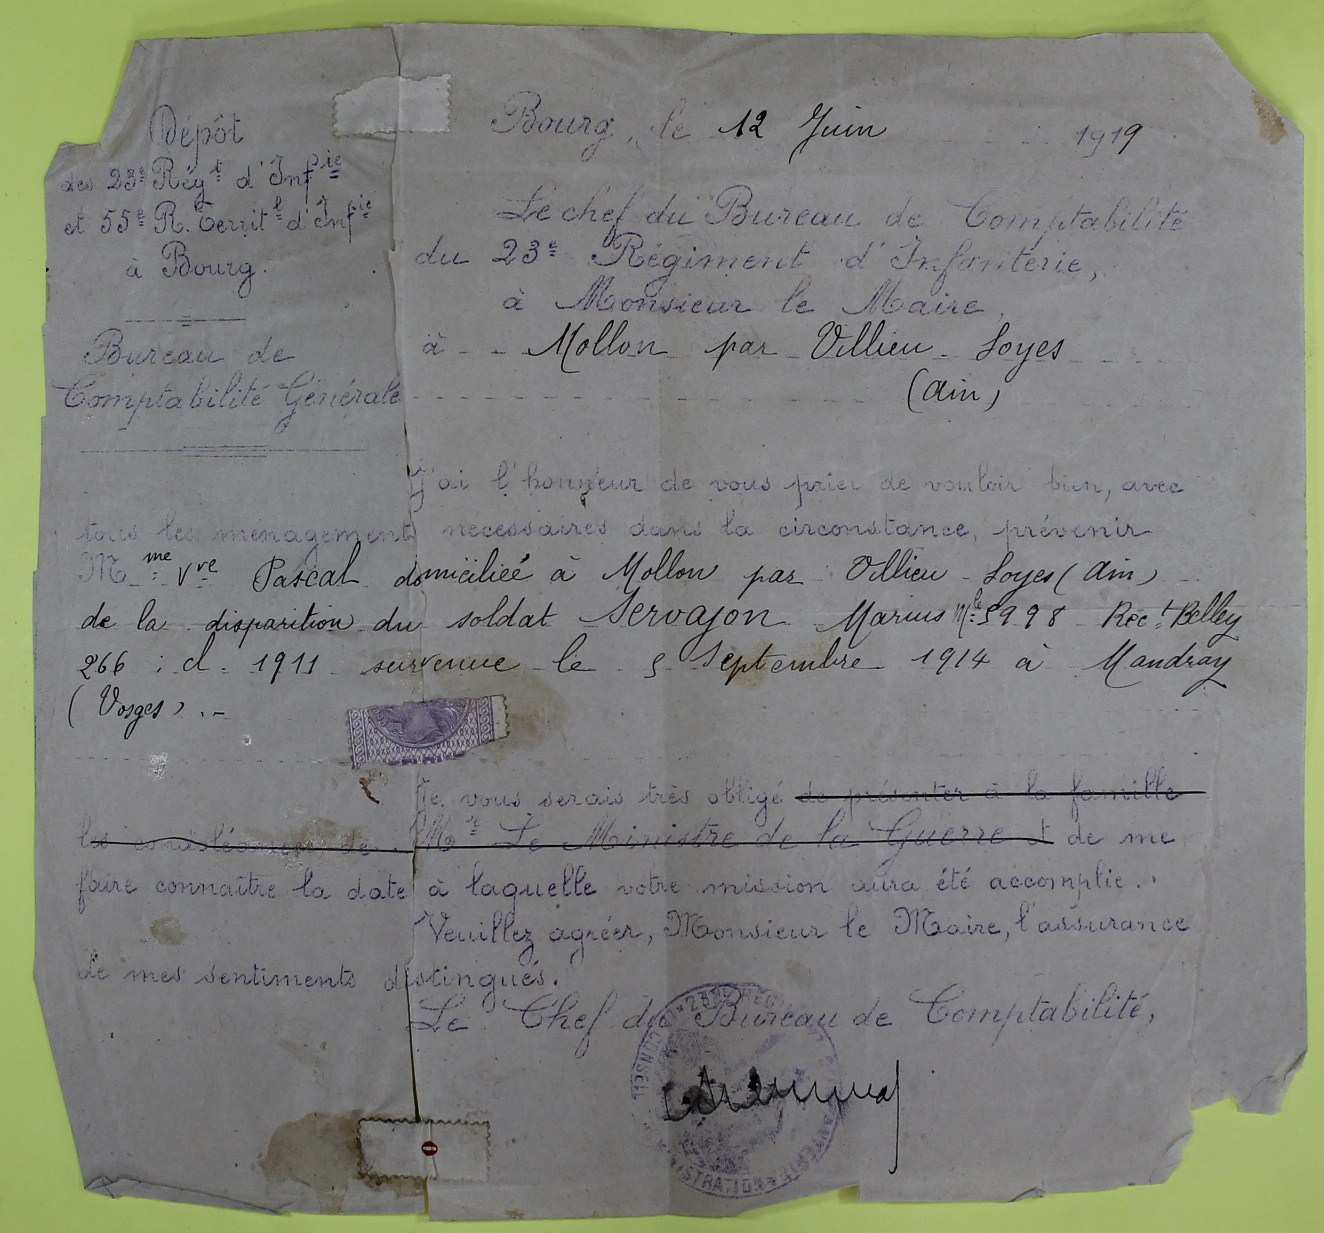 Dépôt
des 23e Régt d'Infie
et 55e R. Territl d'Infie
à Bourg.
Bureau de
Comptabilité Générale
Bourg, le 12 Juin 1919
Le chef du Bureau de Comptabilité
du 23e Régiment d'Infanterie,
à Monsieur le Maire,
à Mollon par Villieu-Loyes
(Ain)
J'ai l'honneur de vous prier de vouloir bien, avec
tous les ménagements nécessaires dans la circonstance, prévenir
Mme Vve Pascal domiciliée à Mollon par Villieu-Loyes (Ain)
de la disparition du soldat Servajon Marius Mle 5998 Rect Belley
266 : cl. 1911 survenue le 5 Septembre 1914 à Mandray
(Vosges).-
Je vous serais très obligé de présenter à la famille
les condoléances de Mr Le Ministre de la Guerre et de me
faire connaître la date à laquelle votre mission aura été accomplie.
Veuillez agréer, Monsieur le Maire, l'assurance
de mes sentiments distingués.
Le Chef du Bureau de Comptabilité,